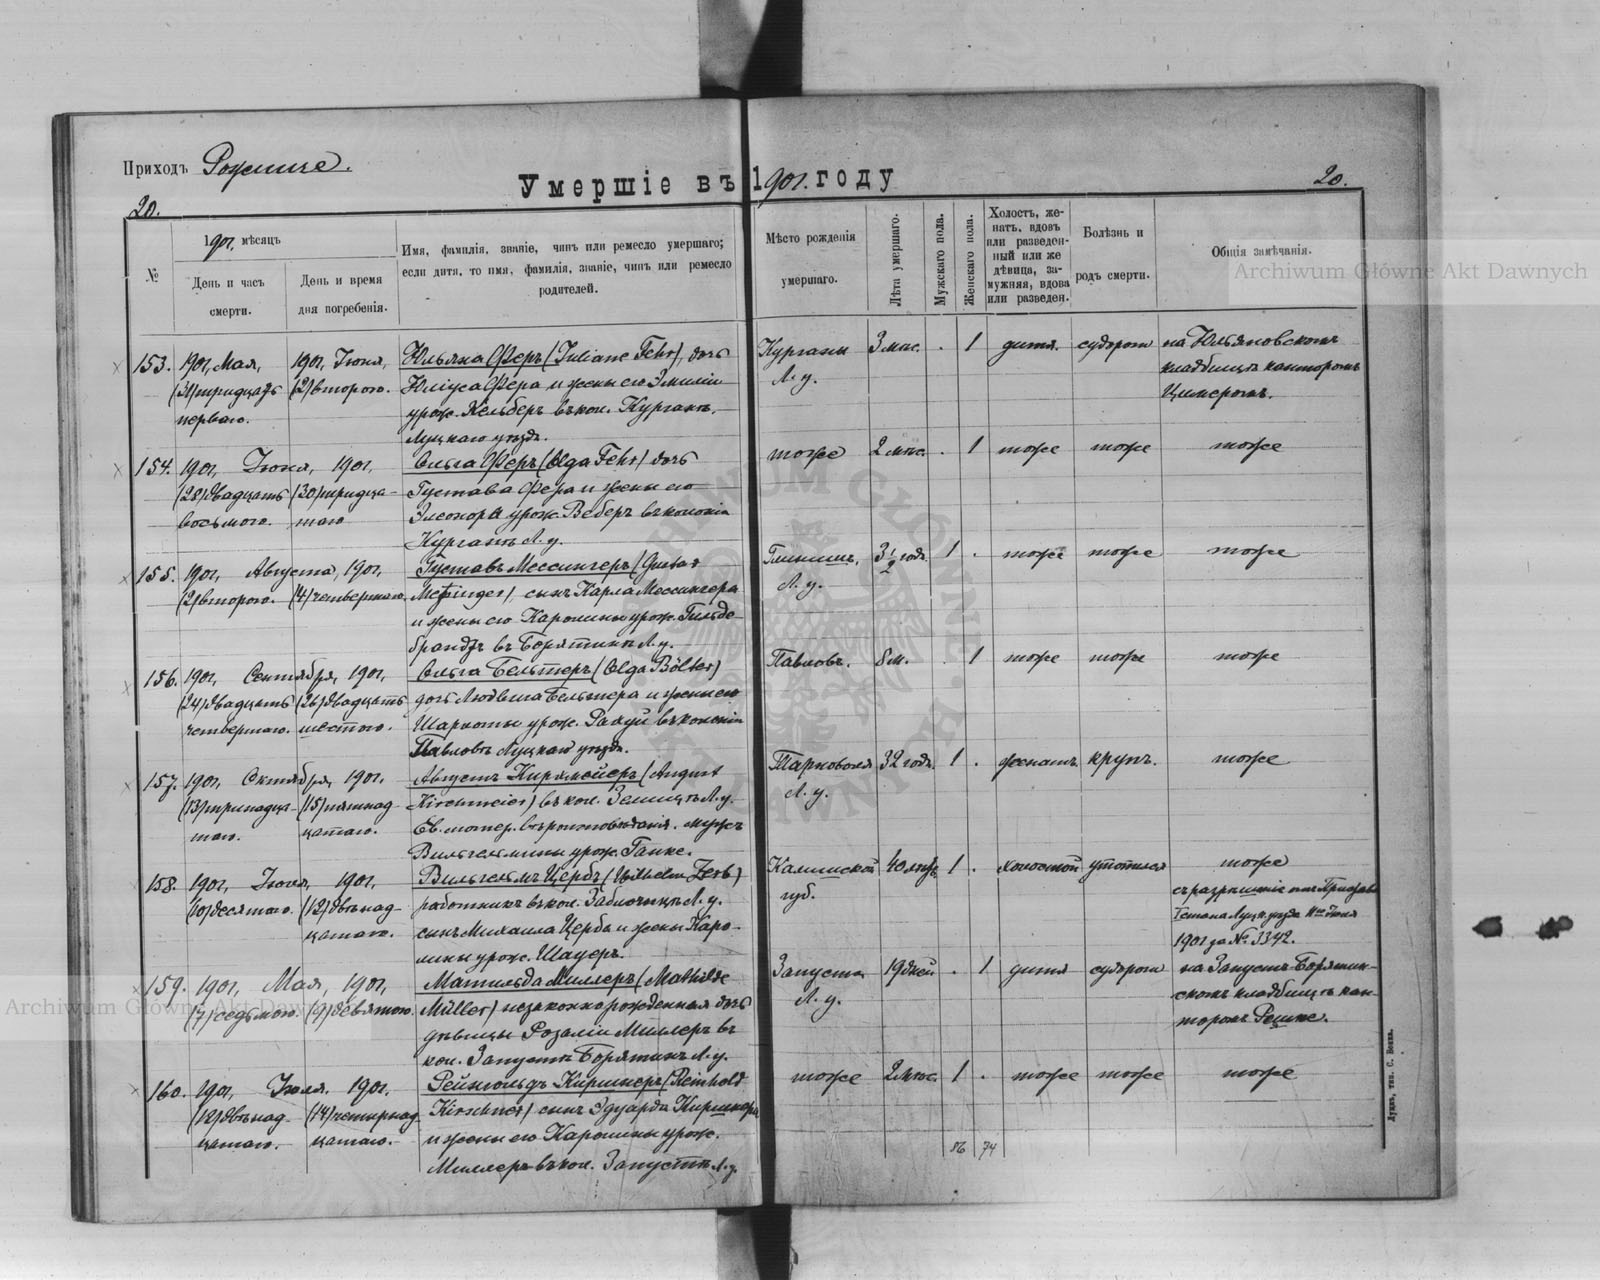 Приходъ Рожище.
Умершіе въ 1901. году
20.
20.
№
1901, мѣсяцъ
День и часъ смерти.
День и время дня погребенія.
Имя, фамилія, званіе, чинъ или ремесло умершаго;
если дитя, то имя, фамилія, званіе, чинъ или ремесло
родителей.
Мѣсто рожденія
умершаго.
Лѣта умершаго.
Мужскаго пола.
Женскаго пола.
Холостъ, же-
натъ, вдовъ
или разведен-
ный или же
дѣвица, за-
мужняя, вдова
или разведен.
Болѣзнь и
родъ смерти.
Общія замѣчанія.
Archiwum Główne Akt Dawnych
153. 1901, Мая, 1901, Іюня, Юльяна Феръ (Juliane Fehr), дочь
(31) тридцать (2) второго. Юліуса Фера и жены его Эмиліи
перваго. урож. Кельберъ въ кол. Курганъ,
Луцкаго уѣзда.
Курганы 3 мѣс. . 1 дитя. судороги на Юльяновскомъ
Л. у. кладбищѣ канторомъ
Цимеромъ.
154. 1901, Іюня, 1901, Ольга Феръ (Olga Fehr) дочь
(28) двадцать (30) тридца- Густава Фера и жены его
восьмого. таго Элеоноры урож. Веберъ въ колоніи
Курганъ Л. у.
тоже 2 мѣс. . 1 тоже тоже тоже
155. 1901, Августа, 1901, Густавъ Мессингеръ (Gustav
(2) второго. (4) четвертаго. Meßinger), сынъ Карла Мессингера
и жены его Каролины урож. Гильде-
брандъ въ Борятинъ Л. у.
Л. у. 3 1/2 года. 1 . тоже тоже тоже
156. 1901, Сентября, 1901, Ольга Бельтеръ (Olga Bölter)
(24) двадцать (26) двадцать дочь Людвига Бельтера и жены его
четвертаго. шестого. Шарлоты урож. въ колоніи
Павловъ Луцкаго уѣзда.
Павловъ. 8 м. . 1 тоже тоже тоже
157. 1901, Октября, 1901, Августъ Кирхмейеръ (August
(13) тринадца- (15) пятнад- Kirchmeier) въ кол. Л. у.
таго. цатаго. Ев. лютер. вѣроисповѣданія. мужъ
Вильгельмины урож. Ганке.
Л. у. 32 года. 1 . женатъ. крупъ. тоже
158. 1901, Іюля, 1901, Вильгельмъ Цербъ (Wilhelm Zerb)
(10) десятаго. (12) двѣнад- работникъ въ кол. Л. у.
цатаго. сынъ Михаила Церба и жены Каро-
лины урож. Шауеръ.
Калишской 40 лѣтъ 1 . холостой утопился тоже
губ. съ разрѣшенія отъ
Луцк. уѣзда Іюля
1901 за № 3342.
159. 1901, Мая, 1901, Матильда Миллеръ (Mathilde
(7) седьмого. (9) девятаго. Müller) незаконнорожденная дочь
дѣвицы Розаліи Миллеръ въ
кол. Запустъ Борятинъ Л. у.
Запуста 19 дней . 1 дитя судороги на Запустъ-Борятин-
Л. у. скомъ кладбищѣ кан-
торомъ Решке.
Archiwum Główne Akt Dawnych
160. 1901, Іюля, 1901, Рейнгольдъ Киршнеръ (Reinhold
(12) двѣнад- (14) четырнад- Kirschner) сынъ Эдуарда Киршнера
цатаго. цатаго. и жены его Каролины урож.
Миллеръ въ кол. Запустъ Л. у.
тоже 2 мѣс. 1 . тоже тоже тоже
86 74
Луцкъ, тип. С. Бокъ.